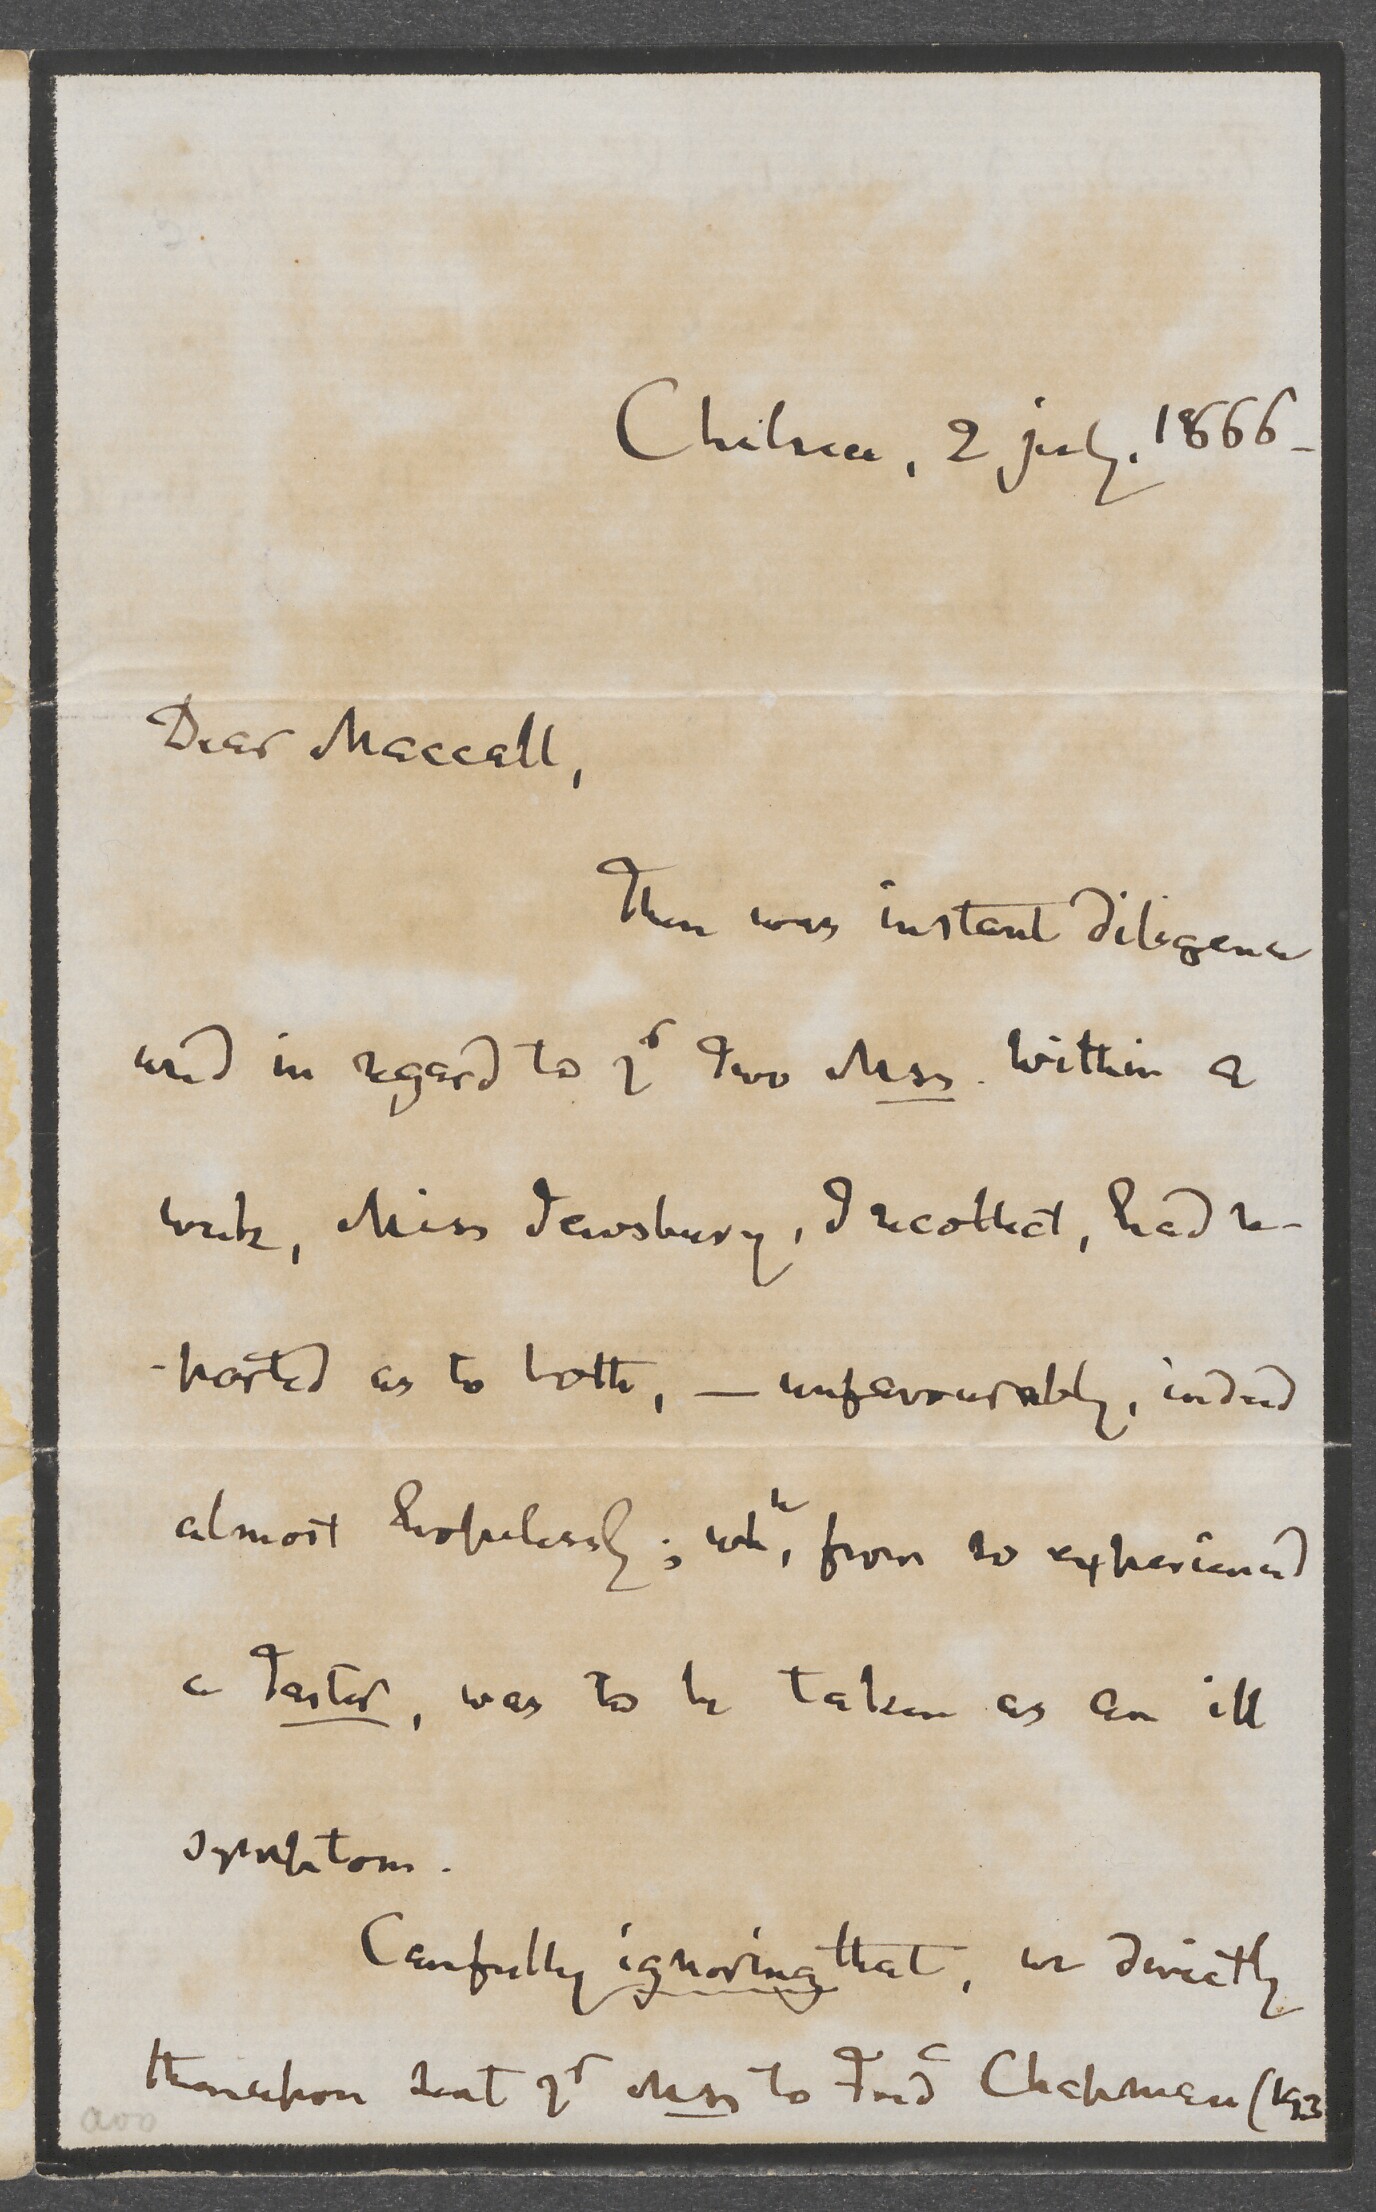 Chelsea, 2 july, 1866 –
Dear Maccall,
There was instant diligence
used in regard to yr Two Mss. Within a
week, Miss Jewsbury, I recollect, had re-
-ported as to both, — unfavourably, indeed
almost hopelessly; wh^h, from so experienced
a Taster, was to be taken as an ill
symptom.
Carefully ignoring that, we directly
thereupon sent yr Mss to Fredc Chapman (193